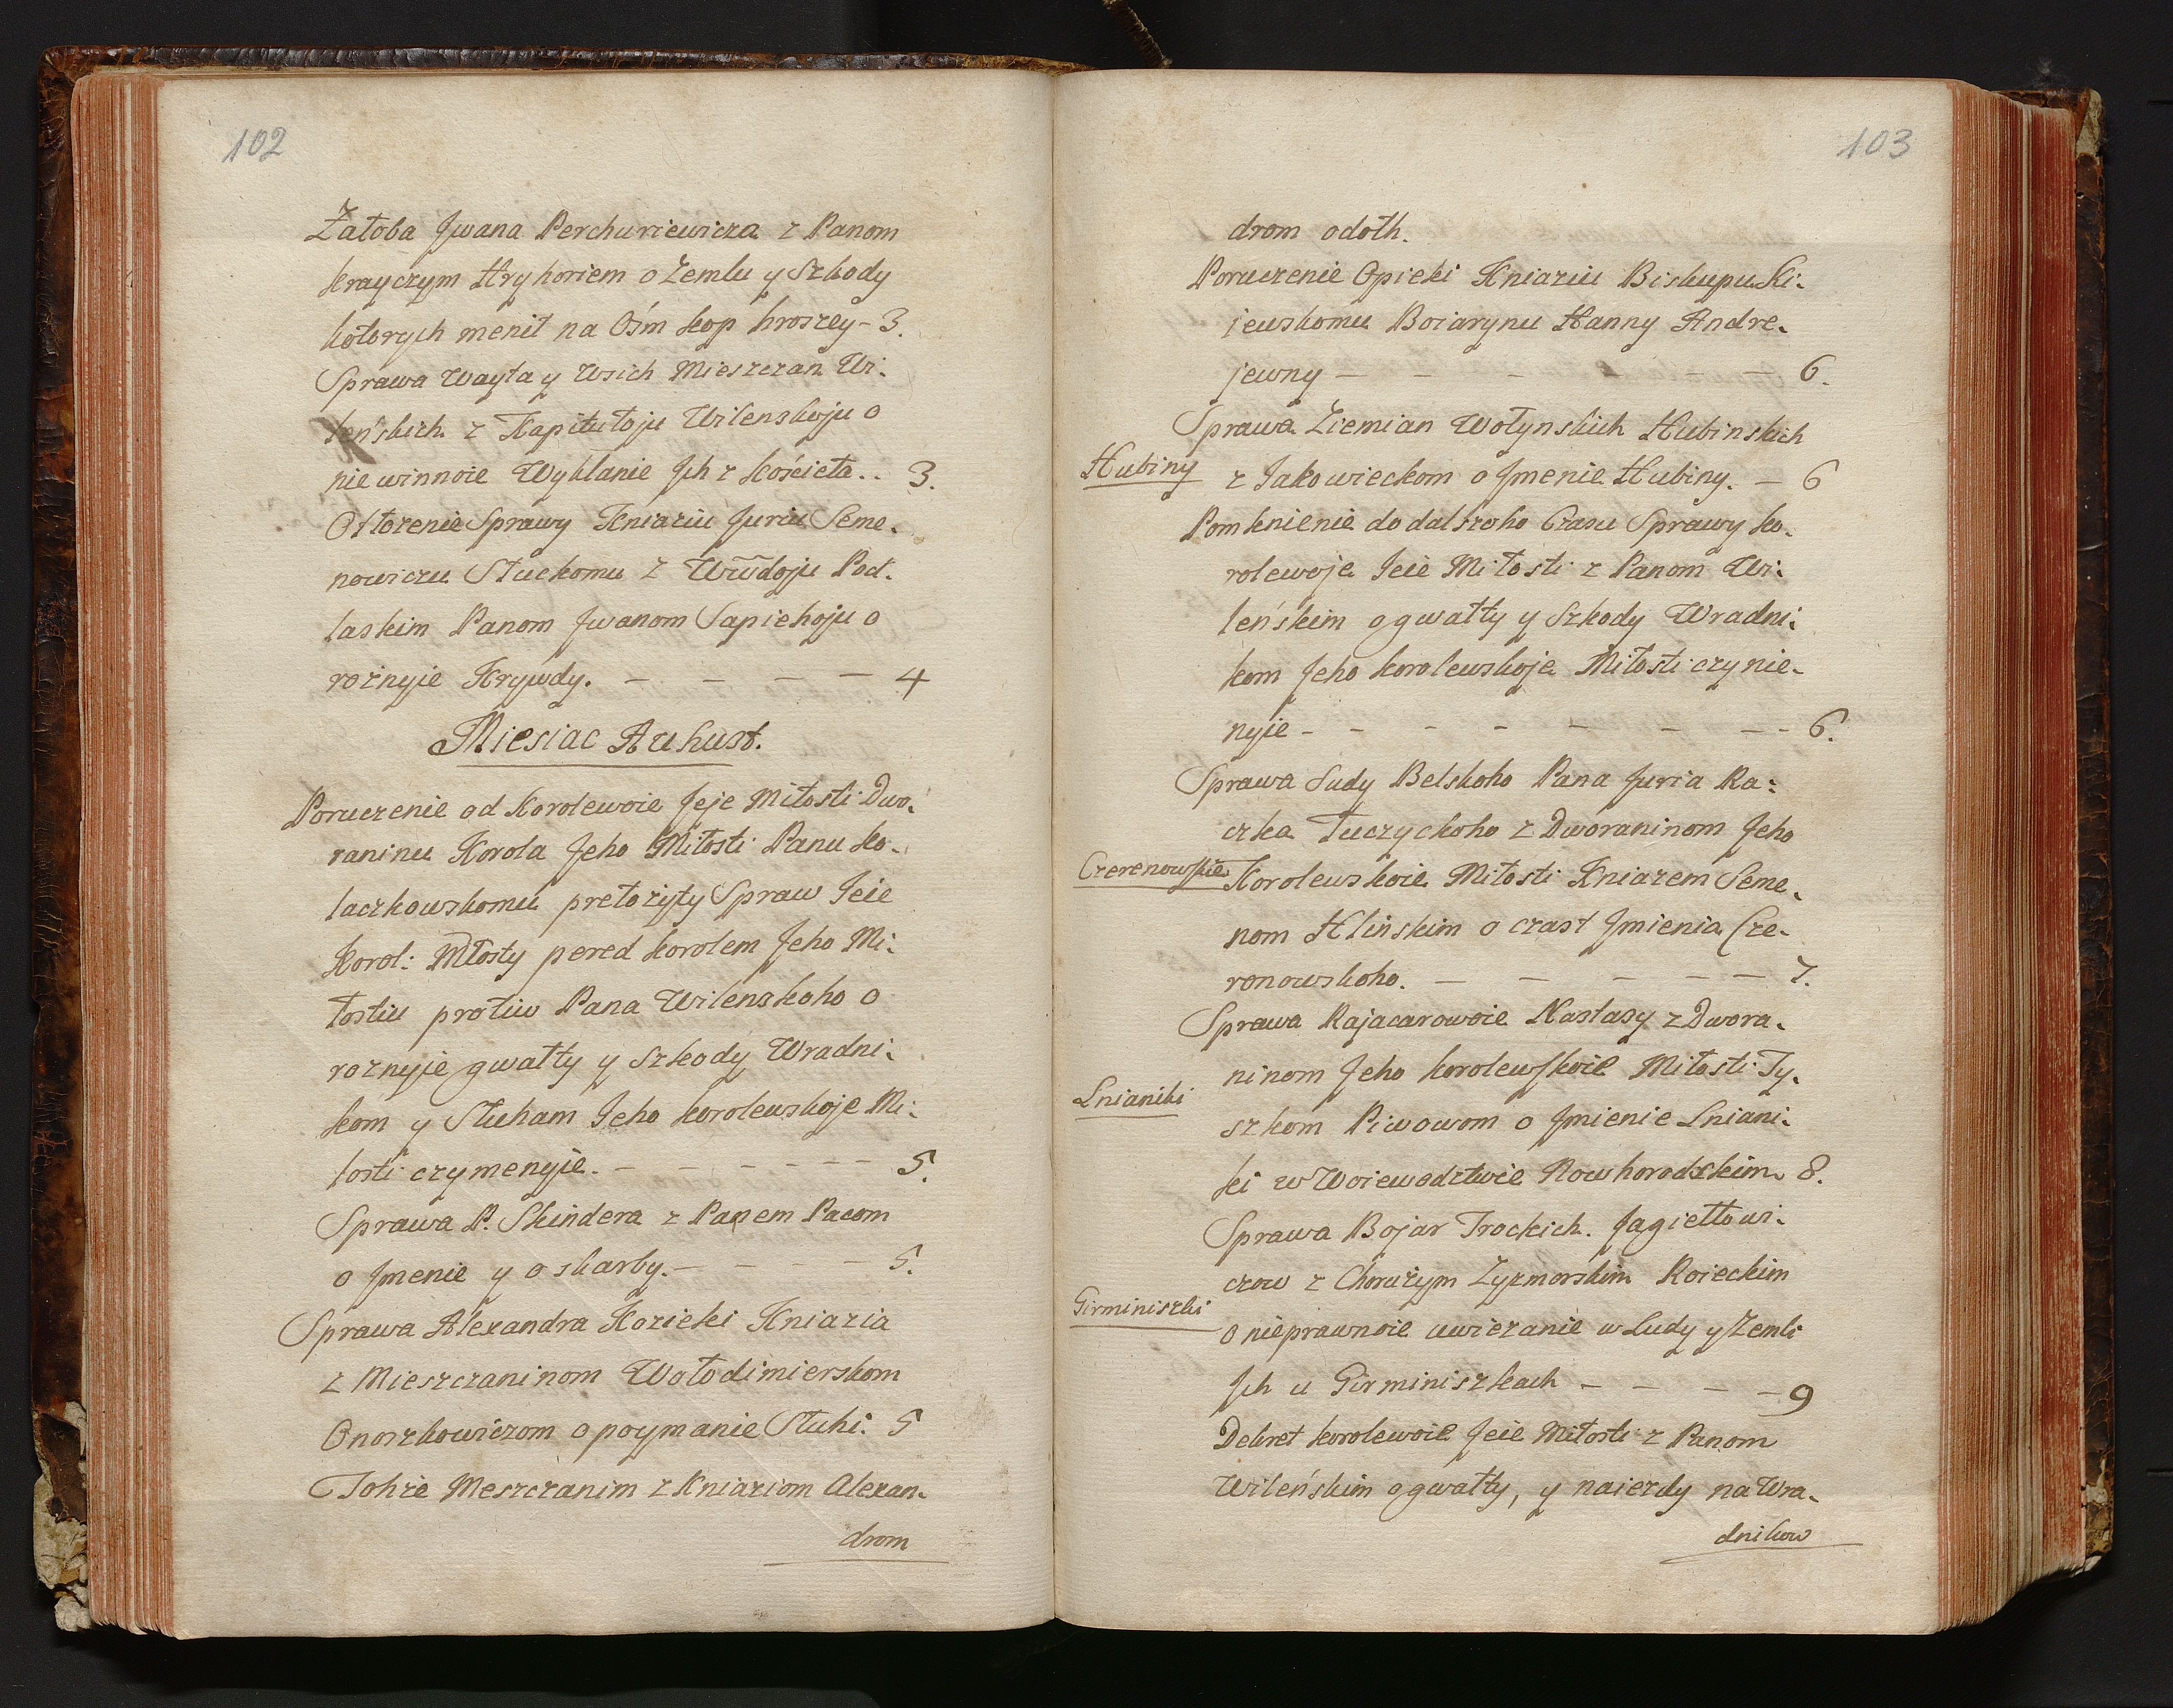 102
Żałoba Jwana Perchuriewicza z Panom
krayczym Hryhoriem o Zemlu y Szkody
kotorych menit na Ośm kop hroszey - 3.
Sprawa Wayta y Wsich Mieszczan Wi-
leńskich z Kapitułoju Wilenskoju o
niewinnoie Wyklanie Jch z kościeła.. 3.
Otłożenie Sprawy Kniaziu Juriu Seme-
nowiczu Słuckomu z Wwdoju Pod-
laskim Panom Jwanom Sapiehoju o
roznyie Krywdy. - - - - 4
Miesiac Auhust.
Poruczenie od Korolewoie Jeje Miłosti Dwo-
raninu Korola Jeho Miłosti Panu Ko-
laczkowskomu prełożyty Spraw Jeie
Korol: Młosty pered korolem Jeho Mi-
łostiu protiw Pana Wilenskoho o
roznyie gwałty y szkody Wradni-
kom y Słuham Jeho korolewskoje Mi-
losti czymenyie. - - - - - - 5.
Sprawa P. Skindera z Panem Pacom
o Jmenie y o skarby. - - - - 5.
Sprawa Alexandra Kozieki Kniazia
z Mieszczaninom Wołodimierskom
Onoszkowiczom o poymanie Słuhi. 5
Tohże Meszczanim z Kniaziom Alexan-
drom
103
drom odoth.
Poruczenie Opieki Kniaziu Biskupu Ki-
jewskomu Boiarynu Hanny Andre-
jewny - - - - - - 6.
Sprawa Ziemian Wołynskich Hubinskich
Hubiny z Jakowieckom o Jmenie Hubiny. - 6
Pomknienie do dalszoho Czasu Sprawy ko-
rolewoje Jeie Miłosti z Panom Wi-
leńskim o gwałty y Szkody Wradni-
kom Jeho korolewskoje Miłosti czynie-
nyie - - - - - - - - 6.
Sprawa Sudy Belskoho Pana Juria Ra-
czka Tuczyckoho z Dworaninom Jeho
Czerenowskie Korolewskoie Miłosti Kniazem Seme-
nom Hlinskim o czast Jmienia Cze-
ronowskoho. - - - - - 7.
Sprawa Rajacarowoie Nastasy z Dwora-
ninom Jeho korolewskoie Miłosti Ty-
Lnianiki
szkom Piwowom o Jmienie Lniani-
ki w Woiewodztwie Nowhorodzkim 8.
Sprawa Bojar Trockich. Jagiełłowi-
czow z Chorużym Zyzmorskim Roieckim
Girminiszki
o nieprawnoie uwiezanie w Ludy y Zemli
Jch u Girminiszkach - - - - 9
Dekret korolewoie Jeie Miłosti z Panom
Wileńskim o gwałty, y naiezdy na Wra-
dnikow